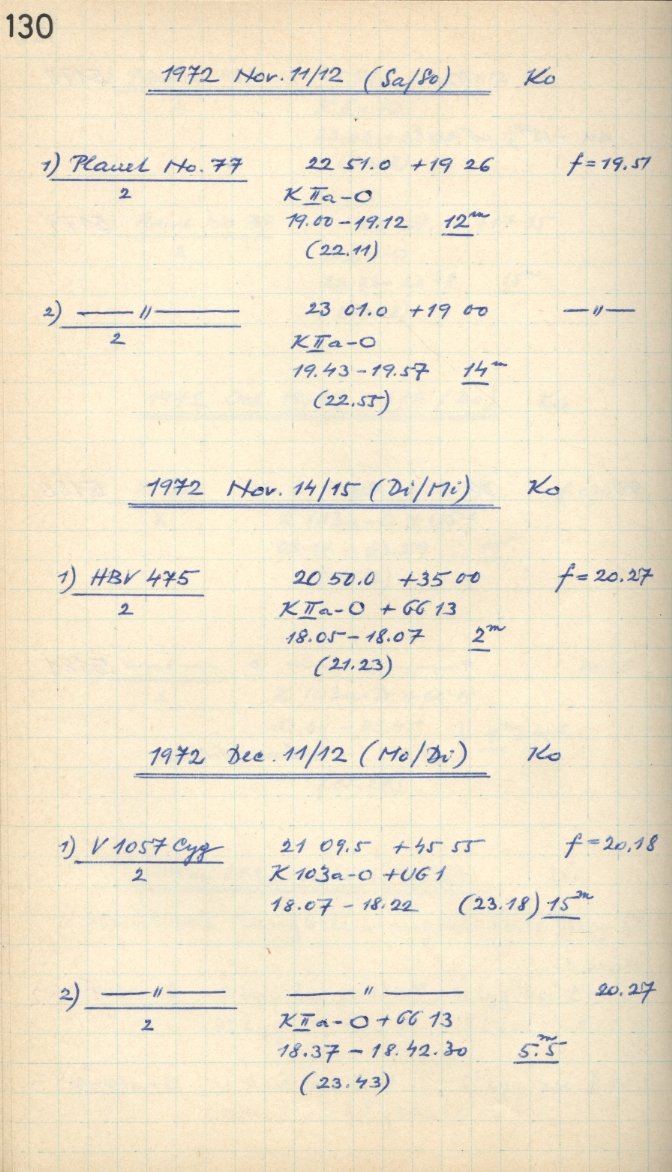 130
1972 Nov. 11/12 (Sa/So) Ko
1) Planet No. 77 22 51.0 +19 26 f = 19.51
2 K IIa-O
19.00 - 19.12 12m
(22.11)
2) — " — 23 01.0 +19 00 — " —
2 K IIa-O
19.43 - 19.57 14m
(22.55)
1972 Nov. 14/15 (Di/Mi) Ko
1) HBV 475 20 50.0 +35 00 f = 20.27
2 K IIa-O + GG 13
18.05 - 18.07 2m
(21.23)
1972 Dec. 11/12 (Mo/Di) Ko
1) V 1057 Cyg 21 09.5 +45 55 f = 20.18
2 K 103a-O + UG1
18.07 - 18.22 (23.18) 15m
2) — " — — " — 20.27
2 K IIa-O + GG 13
18.37 - 18.42.30 5m.5
(23.43)